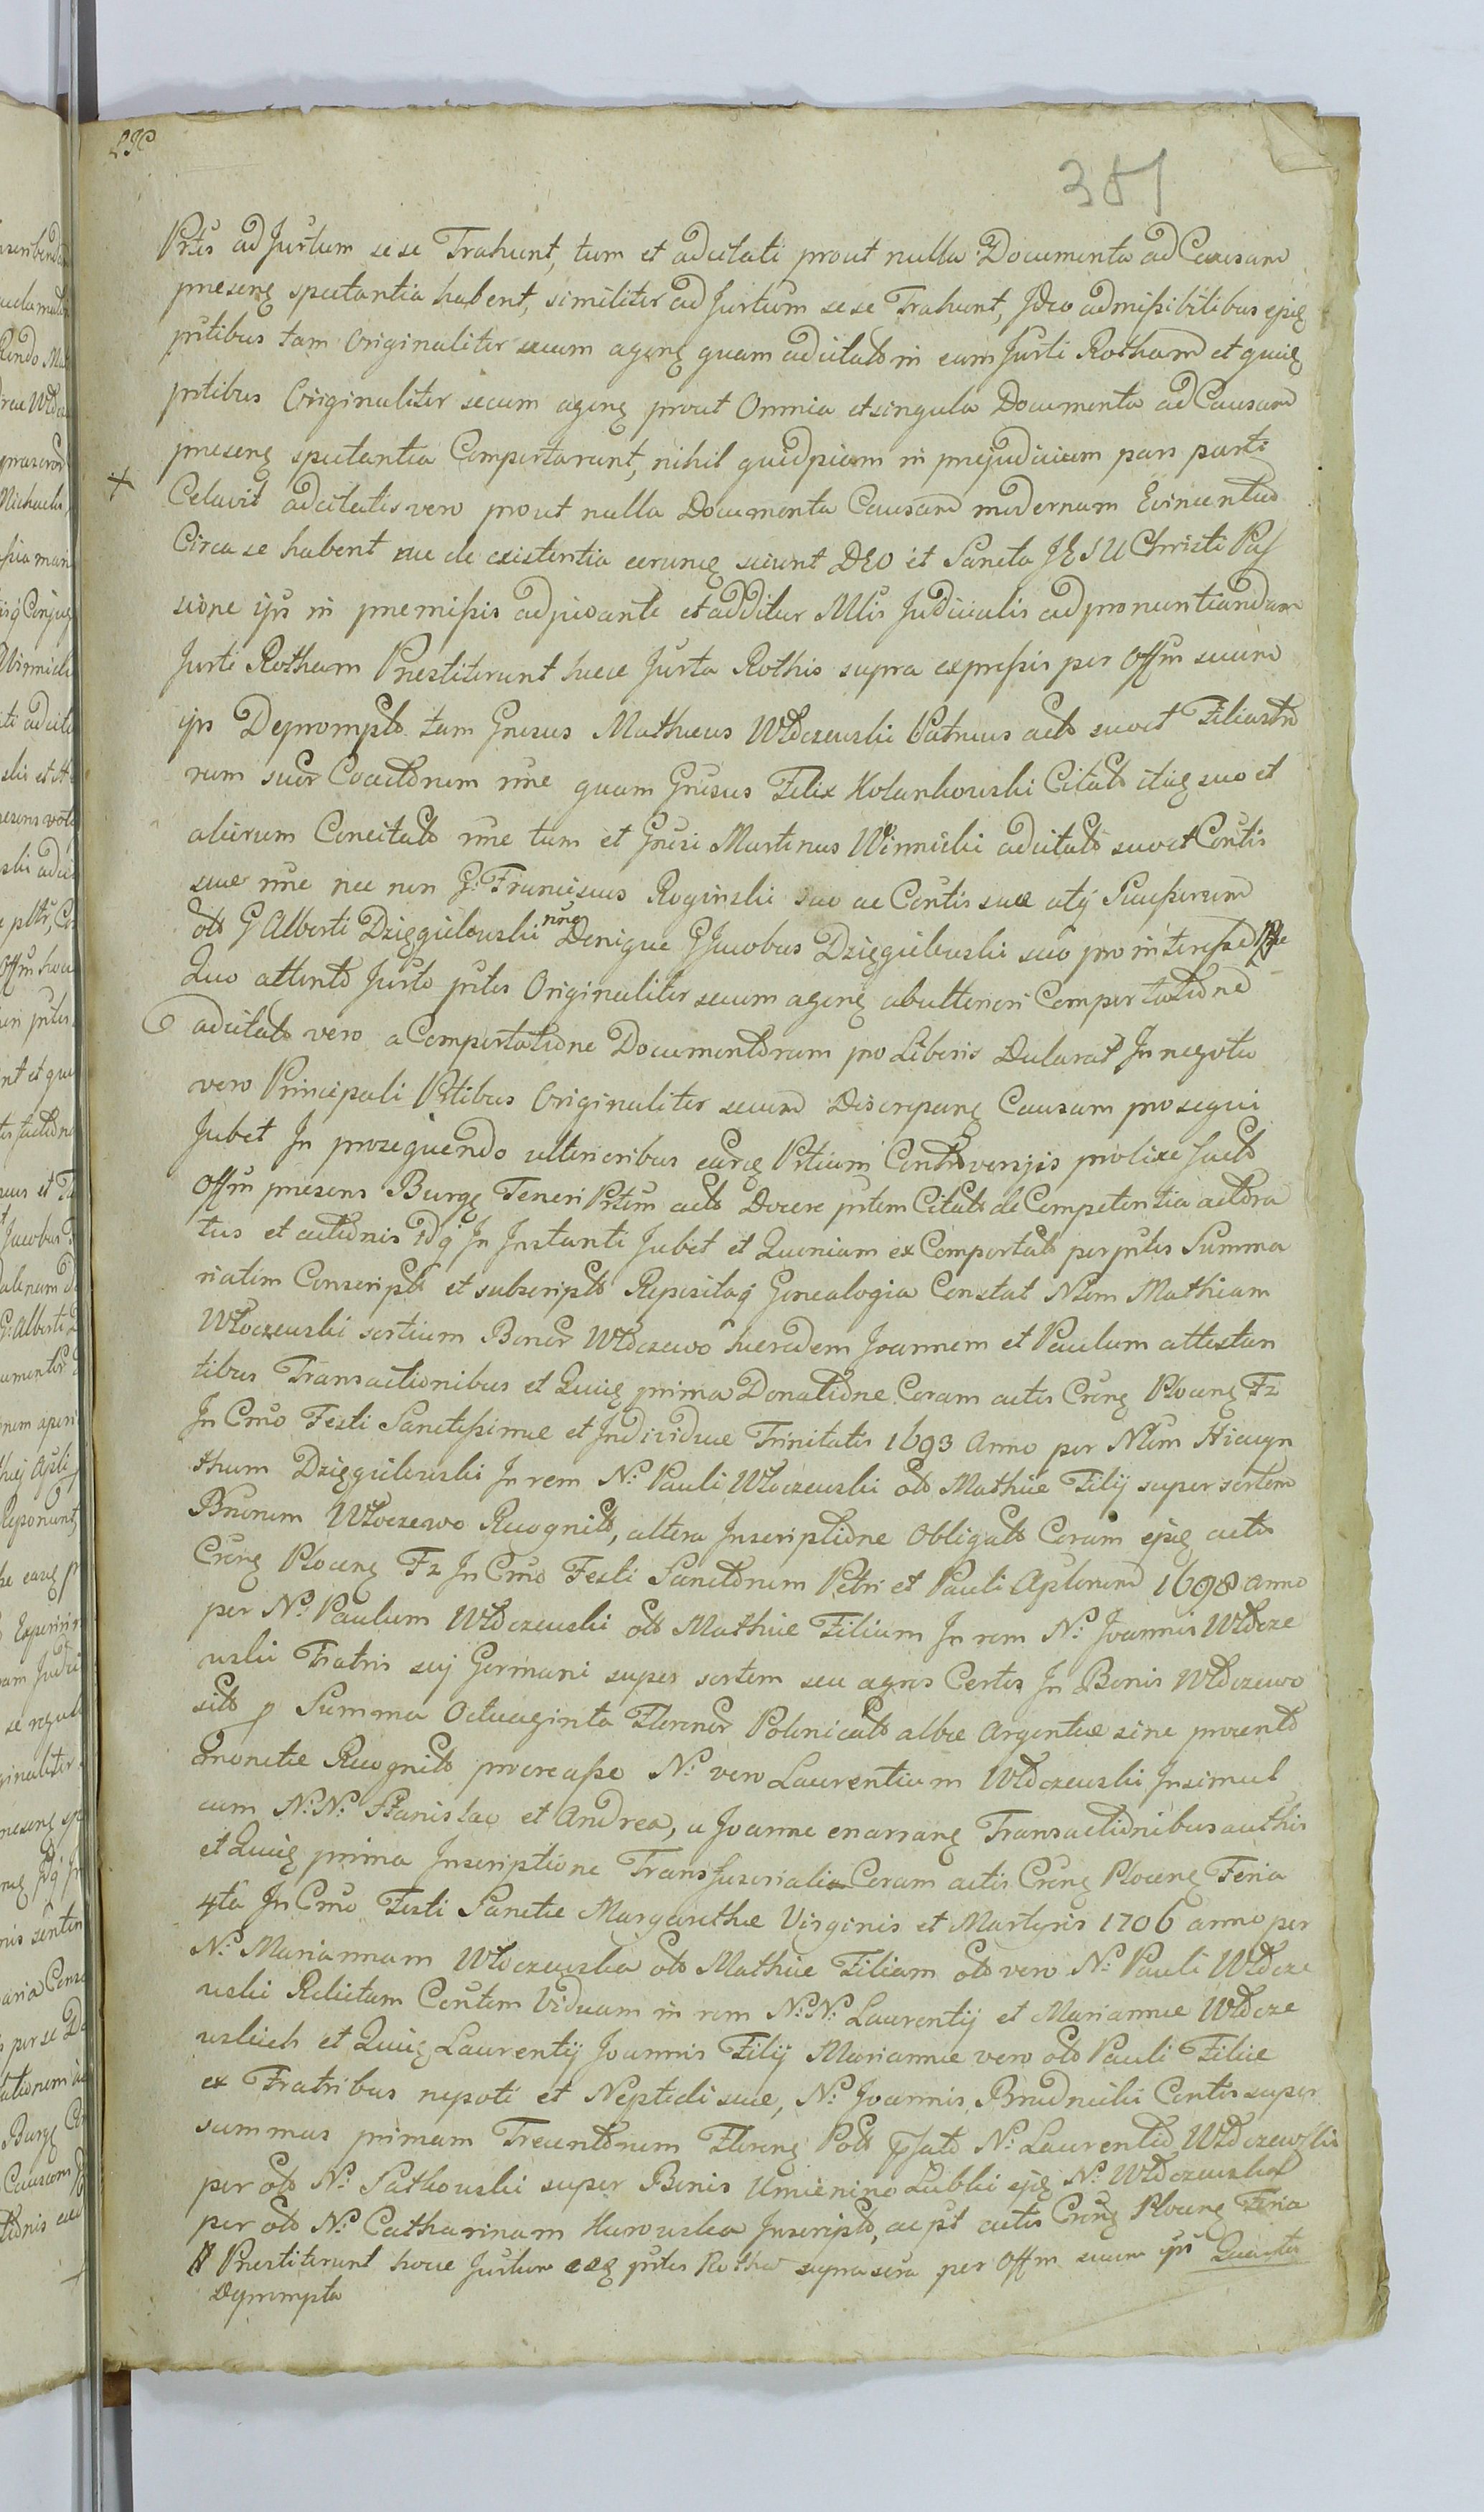 351
Prtes ad Jurtum sese Trahunt, tum et adcitati prout nulla Documenta ad Causam
presenę spectantia habent, similiter ad Jurtum sese Trahunt, Ideo admissibilibus ejsę
prtibus tam Originaliter secum agenę quam adcitato in eam Jurti Rotham et quię
prtibus Originaliter secum agenę prout Omnia et singula Documenta ad Causam
presenę spectantia Comportarunt, nihil quidpiam in prejudicium pars parti
Celavit adcitatis vero prout nulla Documenta Causam modernam Evincentia
Circa se habent nec de existentia eorumę sciunt DEO et Sancta JESU Christi Pas
sione ips in premissis adjuvante et additur Mlis Judicialis ad pronuntiandam
Jurti Rotham Prestiterunt haec Jurta Rothis supra expressis per Offm suum
ips Deprompto tam Gnrsus Mathaeus Włoczewski Patruus acto suo et Filiastro
rum suor Coactorum nne quam Gnrsus Felix Kolankowski Citato itaę suo et
aliorum Concitato nne tum et Gnrsi Martinus Winnicki adcitato suo et Contis
suae nne nec non G: Franciscus Roginski suo ac Contis suae atę Successorum
olo G Alberti Dzięgielewski nne Denique G Jacobus Dzięgielewski suo pro interesse
Quo attento Jurto prtes Originaliter secum agenę ab ulteriori Comportatione
adcitato vero a Comportatione Documentorum pro Liberis Declarat In negotio
vero Principali Prtibus Originaliter secum Discrepanę Causam prosequi
Jubet In prosequendo ulterioribus earę Prtium Controversijs prolixe facto
Offm presens Burgę Teneri Prtem acto Docere prtem Citato de Competentia actora
tus et actionis Idę In Instanti Jubet et Quoniam ex Comportato per prtes Summa
riatim Conscripto et subscripto Repositaę Genealogia Constat Nlem Mathiam
Włoczewski sortium Bonor Włoczewo haeredem Joannem et Paulum attestan
tibus Transactionibus et Quię prima Donatione Coram actis Crenę Plocenę Fz
In Crno Festi Sanctissimae et Individuae Trinitatis 1693 Anno per Nlem Hiacyn
thum Dzięgielewski In rem N: Pauli Włoczewski olo Mathiae Filij super sortem
Bnorum Włoczewo Recognito, altera Inscriptione Obligato Coram ejsę actis
Crenę Plocenę Fz In Crno Festi Sanctorum Petri et Pauli Aplorum 1698 anno
per N: Paulum Włoczewski olo Mathiae Filium In rem N: Joannis Włocze
wski Fratris suj Germani super sortem seu agros Certos In Bonis Włoczewo
sito p Summa Octuaginta Florenor Polonicato albae Argenteae sine procento
monetae Recognito procreasse N: vero Laurentium Włoczewski Insimul
cum N:N: Stanislao et Andrea, a Joanne enarranę Transactionibus authis
et Quię prima Inscriptione Transfusoriali Coram actis Crenę Plocenę Feria
4ta In Crno Festi Sanctae Margarethae Virginis et Martyris 1706 anno per
N: Mariannam Włoczewska olo Mathiae Filiam olo vero N: Pauli Włocze
wski Relictam Contem Viduam in rem N:N: Laurentij et Mariannae Włocze
wskich et Quię Laurentij Joannis Filij Mariannae vero olo Pauli Filiae
ex Fratribus nepoti et Neptedi suae, N: Joannis Brudnicki Contis super
summas primam Trecentorum Florenę Polo N: Laurentio Włoczewski
per olo N: Sutkowski super Bonis Umienino Lubki ejsę N: Włoczewska
per olo N: Catharinam Kurowska Inscripto, ac pt actis Crenę Plocenę Feria
Prestiterunt hocce Jurtum prtes Rotha supra per Offm suum ips Quarta
Deprompta